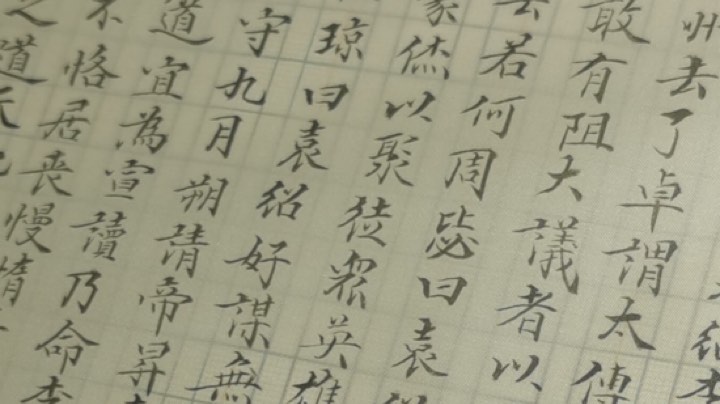 州去了卓謂太傅
敢有阻大議者以
去若何周毖曰袁
以聚徒眾英雄
琼曰袁紹好謀無
守九月朔請帝昇
道宜為宣讀乃命李
不恪居喪慢惰
之道天